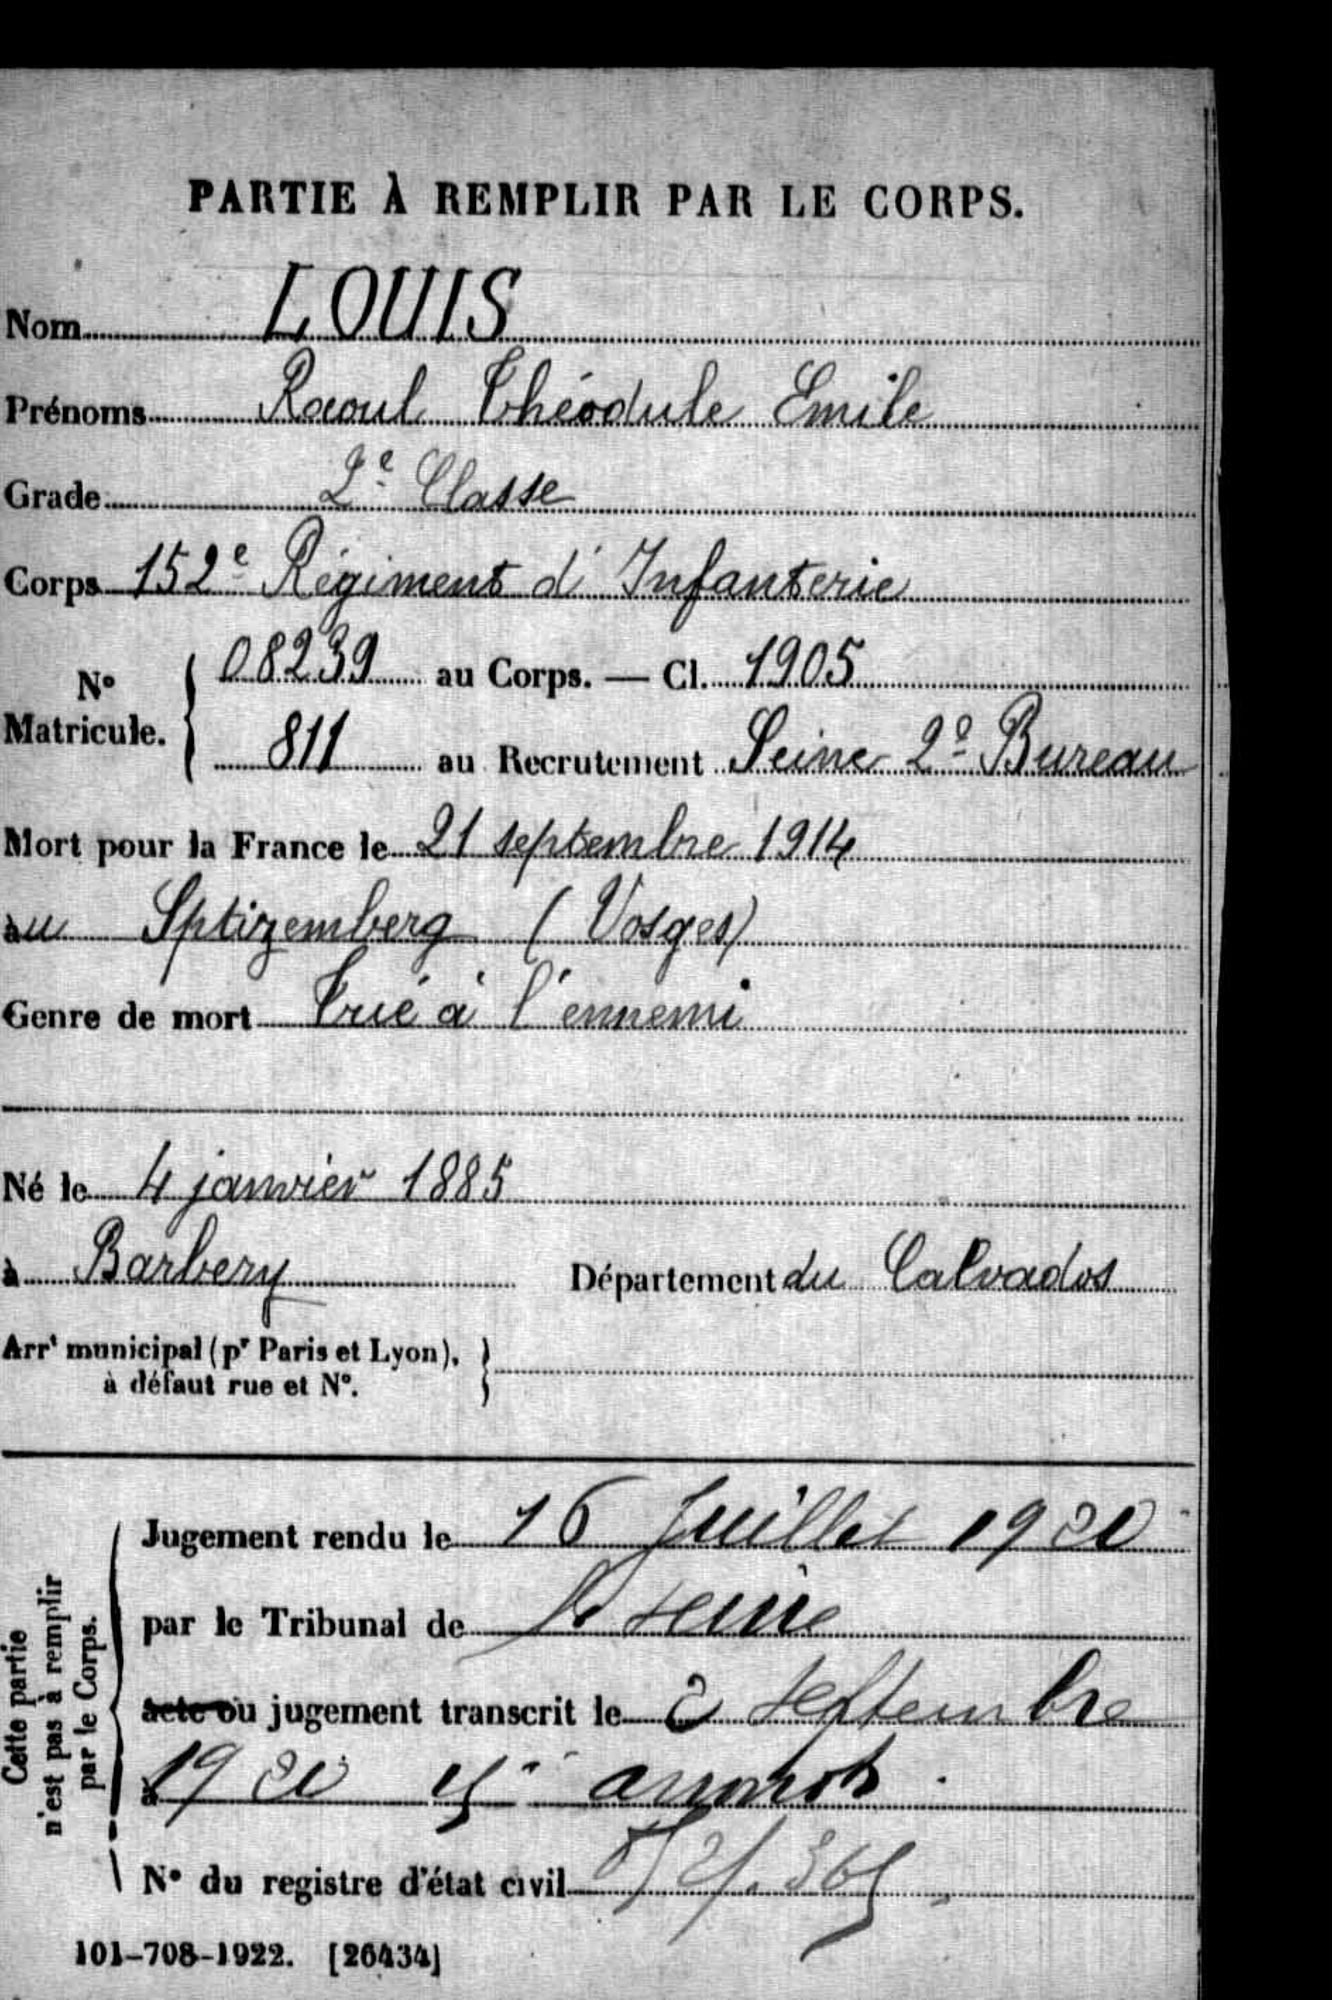 PARTIE À REMPLIR PAR LE CORPS.
Nom LOUIS
Prénoms Raoul Théodule Emile
Grade 2e Classe
Corps 152e Régiment d'Infanterie
N° Matricule. { 08239 au Corps. — Cl. 1905
811 au Recrutement Seine 2e Bureau
Mort pour la France le 21 septembre 1914
au Sptizemberg (Vosges)
Genre de mort Tué à l'ennemi
Né le 4 janvier 1885
à Barbery Département du Calvados
Arrt municipal (pr Paris et Lyon), }
à défaut rue et N°.
Cette partie
n'est pas à remplir
par le Corps.
Jugement rendu le 16 Juillet 1920
par le Tribunal de la Seine
acte ou jugement transcrit le 2 septembre
à 1920
N° du registre d'état civil
101-708-1922. [26434]